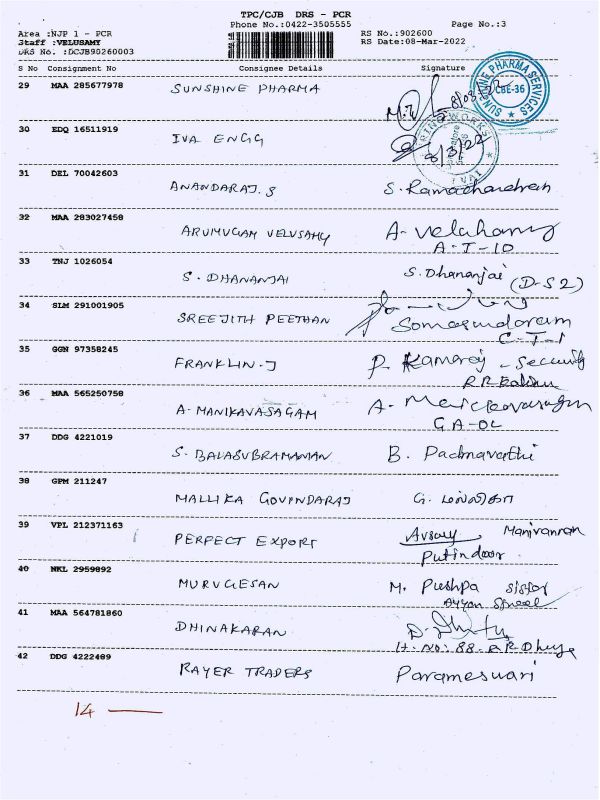 TPC/CJB DRS - PCR
Phone No.:0422-3505555 Page No.:3
Area :NJP 1 - PCR RS No.:902600
Staff :VELUSAMY RS Date:08-Mar-2022
DRS No. :DCJB90260003
S No Consignment No Consignee Details Signature
29 MAA 285677978 SUNSHINE PHARMA
SUNSHINE PHARMA SERVICES CBE-36
30 EDQ 16511919 IVA ENGG 8/3/22
31 DEL 70042603 ANANDARAJ.S S. Ramachandran
32 MAA 283027458 ARUMUGAM VELUSAMY A-
A-T-10
33 TNJ 1026054 S. DHANANJAI S. Dhananjai (D-S2)
34 SLM 291001905 SREEJITH PEETHAN Somasundaram
C-T-1
35 GGN 97358245 FRANKLIN.J P. Kamaraj - Security
36 MAA 565250758 A. MANIKAVASAGAM A.
GA-OL
37 DDG 4221019 S. BALASUBRAMANIAN B. Padmavathi
38 GPM 211247 MALLIKA GOVINDARAJ G. மல்லிகா
39 VPL 212371163 PERFECT EXPORT Manivannan
40 NKL 2959892 MURUGESAN M. Pushpa sister
41 MAA 564781860 DHINAKARAN
H. No: 88-
42 DDG 4222489 RAYER TRADERS Parameswari
14 —